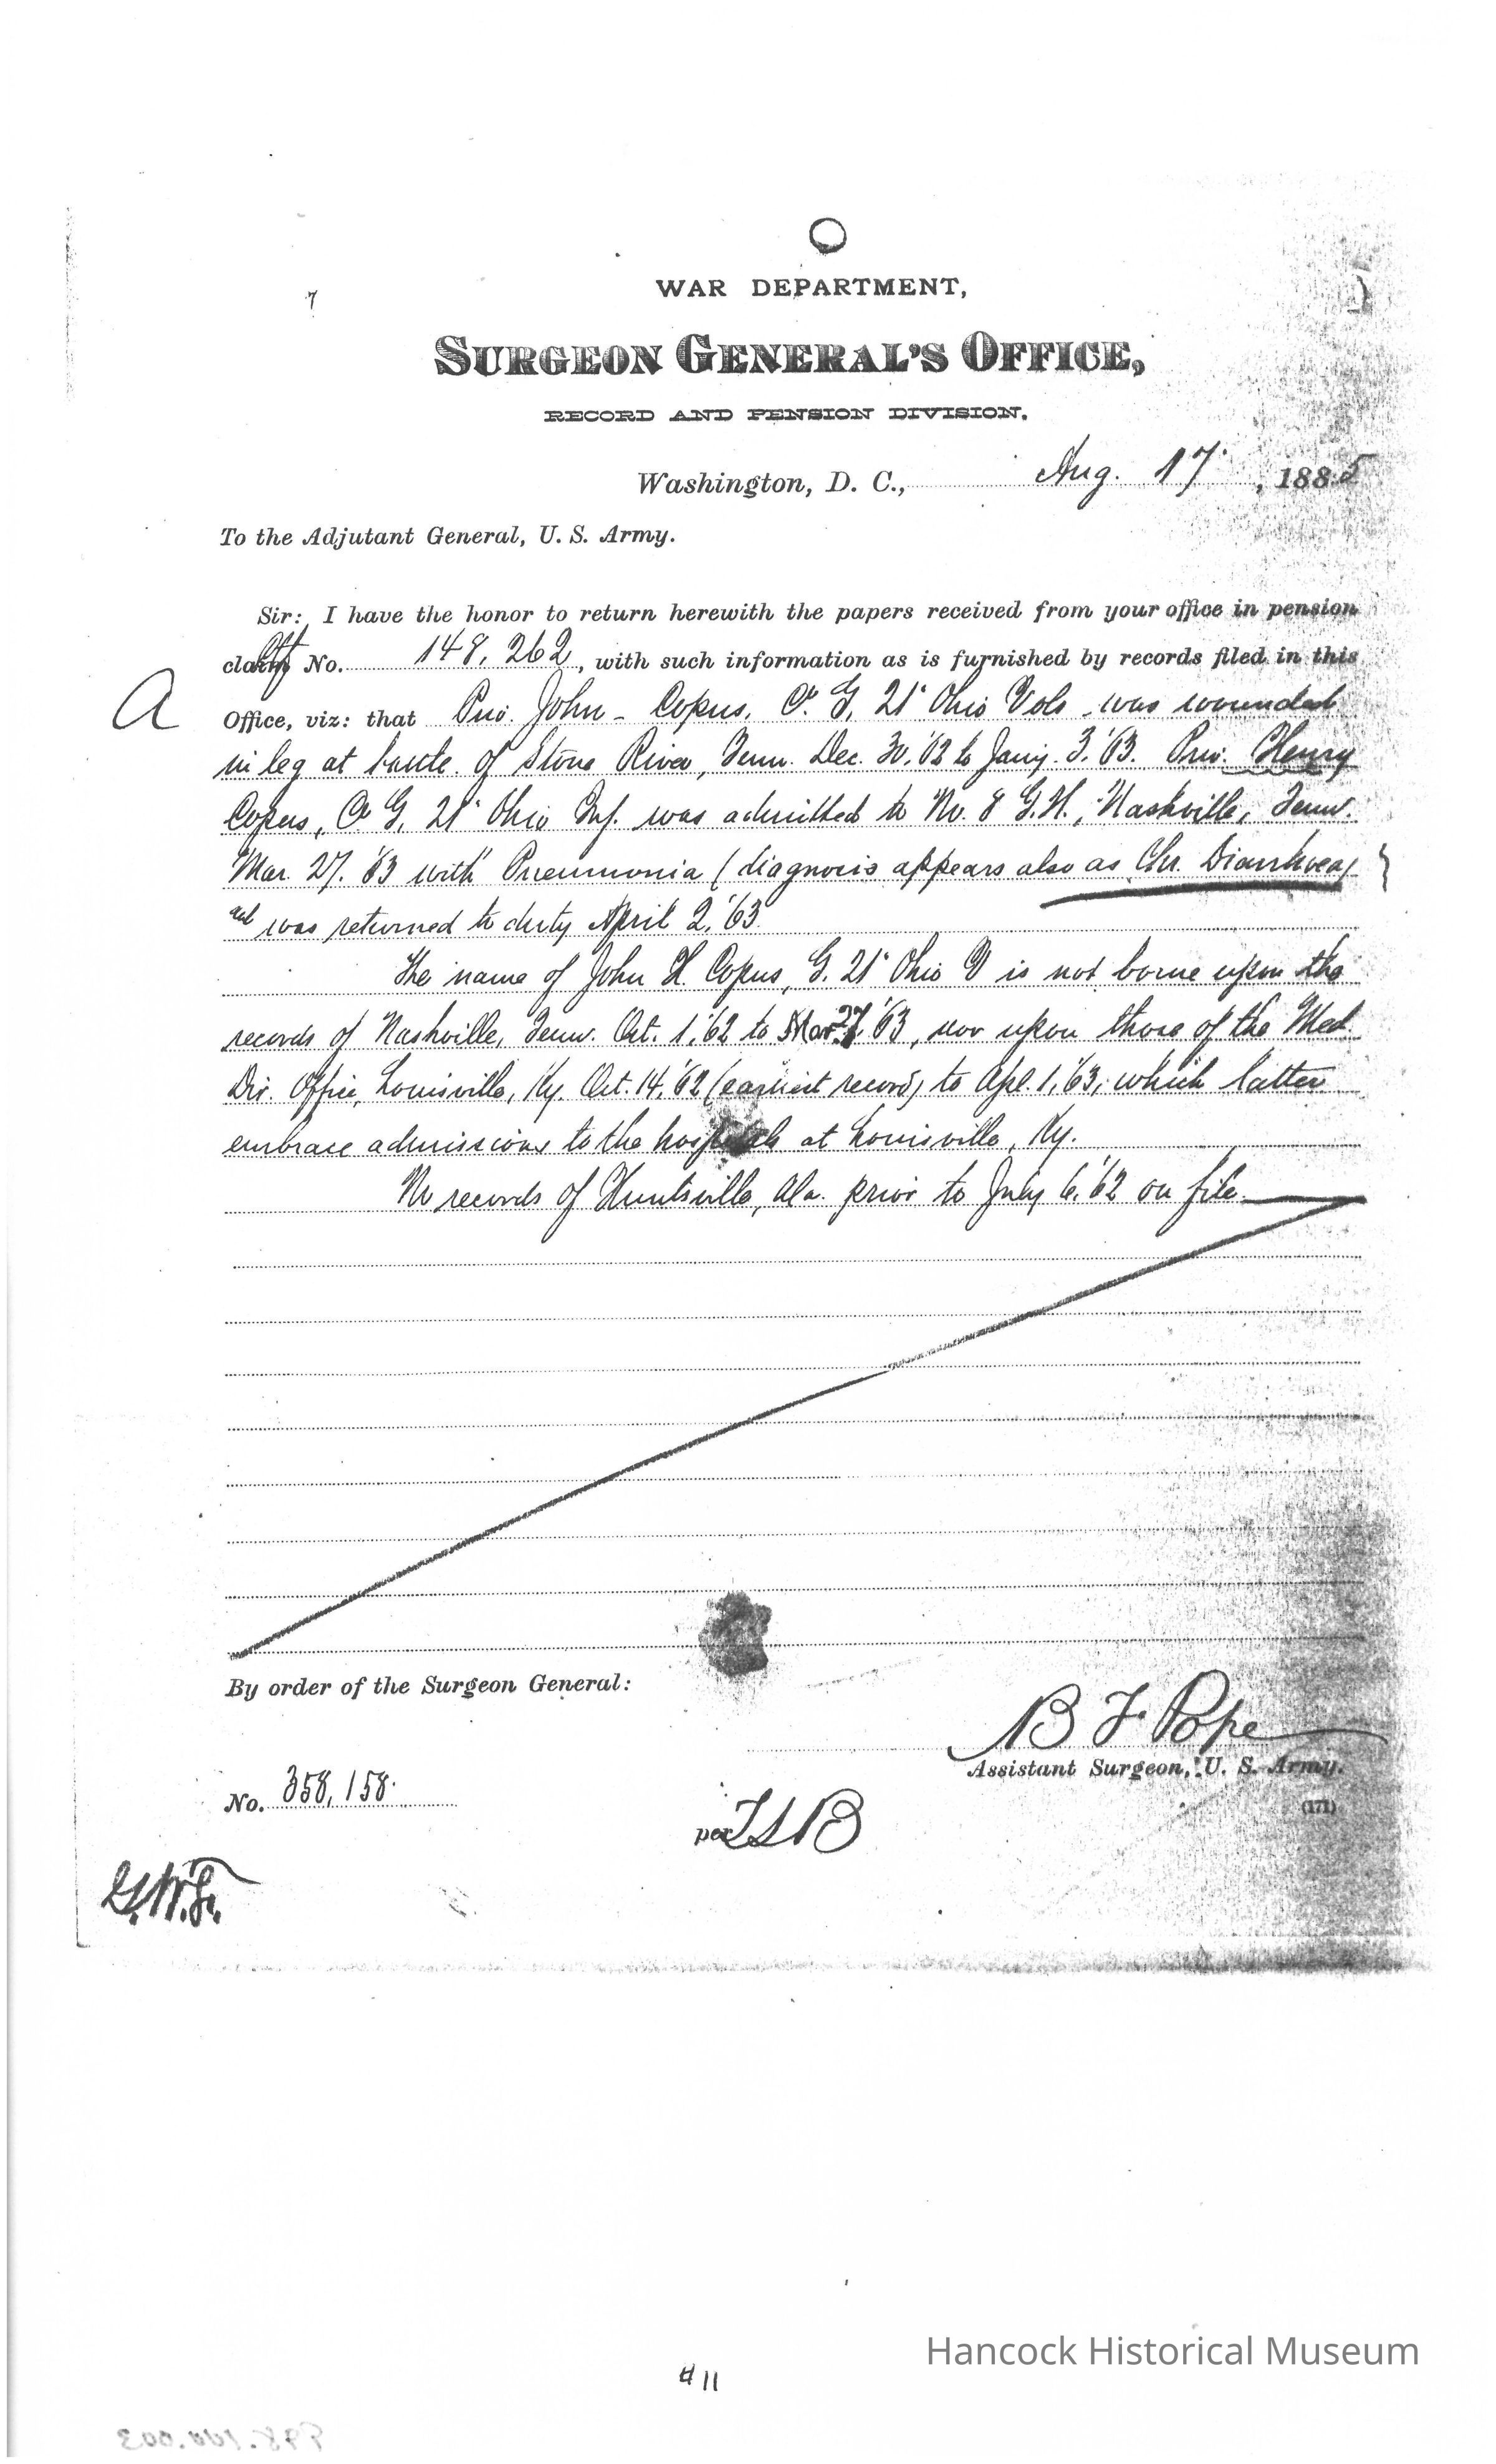 WAR DEPARTMENT,
SURGEON GENERAL'S OFFICE,
RECORD AND PENSION DIVISION.
Washington, D. C., Aug. 17, 1885
To the Adjutant General, U. S. Army.
Sir: I have the honor to return herewith the papers received from your office in pension
claim Ctf No. 148,262, with such information as is furnished by records filed in this
A
Office, viz: that Priv. John - Copus, Co. G, 21" Ohio Vols was wounded
in leg at battle of Stone River, Tenn. Dec. 30,'62 to Jany. 3,'63. Priv. Henry
Copus, Co G, 21" Ohio Inf. was admitted to No. 8 G.H., Nashville, Tenn.
Mar. 27. '63 with Pneumonia (diagnosis appears also as Chr. Diarrhoea)
and was returned to duty April 2,'63.
The name of John H. Copus, G. 21" Ohio V is not borne upon the
records of Nashville, Tenn. Oct. 1,'62 to Mar. 27,'63, nor upon those of the Med.
Dir. Office, Louisville, Ky. Oct. 14,'62 (earliest record) to Apl. 1,'63, which latter
embrace admissions to the hospitals at Louisville, Ky.
No records of Huntsville, Ala. prior to July 6,'62 on file.
By order of the Surgeon General:
B F Pope
Assistant Surgeon, U. S. Army.
(171)
No. 358,158.
per
G.W.F.
Hancock Historical Museum
#11